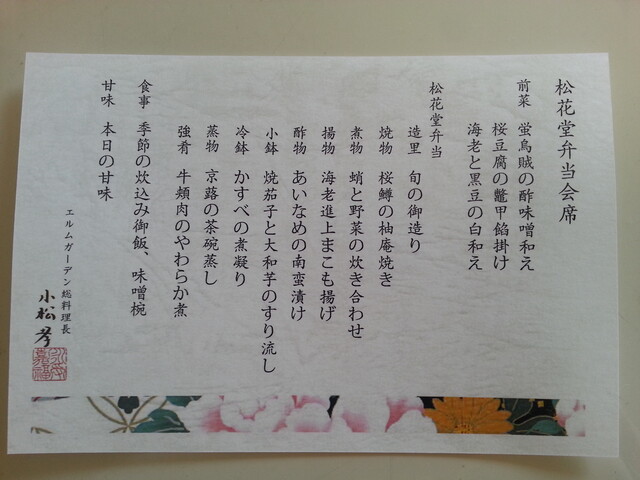 松花堂弁当会席
前菜 蛍烏賊の酢味噌和え
桜豆腐の鼈甲餡掛け
海老と黒豆の白和え
松花堂弁当
造里 旬の御造り
焼物 桜鱒の柚庵焼き
煮物 蛸と野菜の炊き合わせ
揚物 海老進上まこも揚げ
酢物 あいなめの南蛮漬け
小鉢 焼茄子と大和芋のすり流し
冷鉢 かすべの煮凝り
蒸物 京蕗の茶碗蒸し
強肴 牛頬肉のやわらか煮
食事 季節の炊込み御飯、味噌椀
甘味 本日の甘味
エルムガーデン総料理長
小松 孝